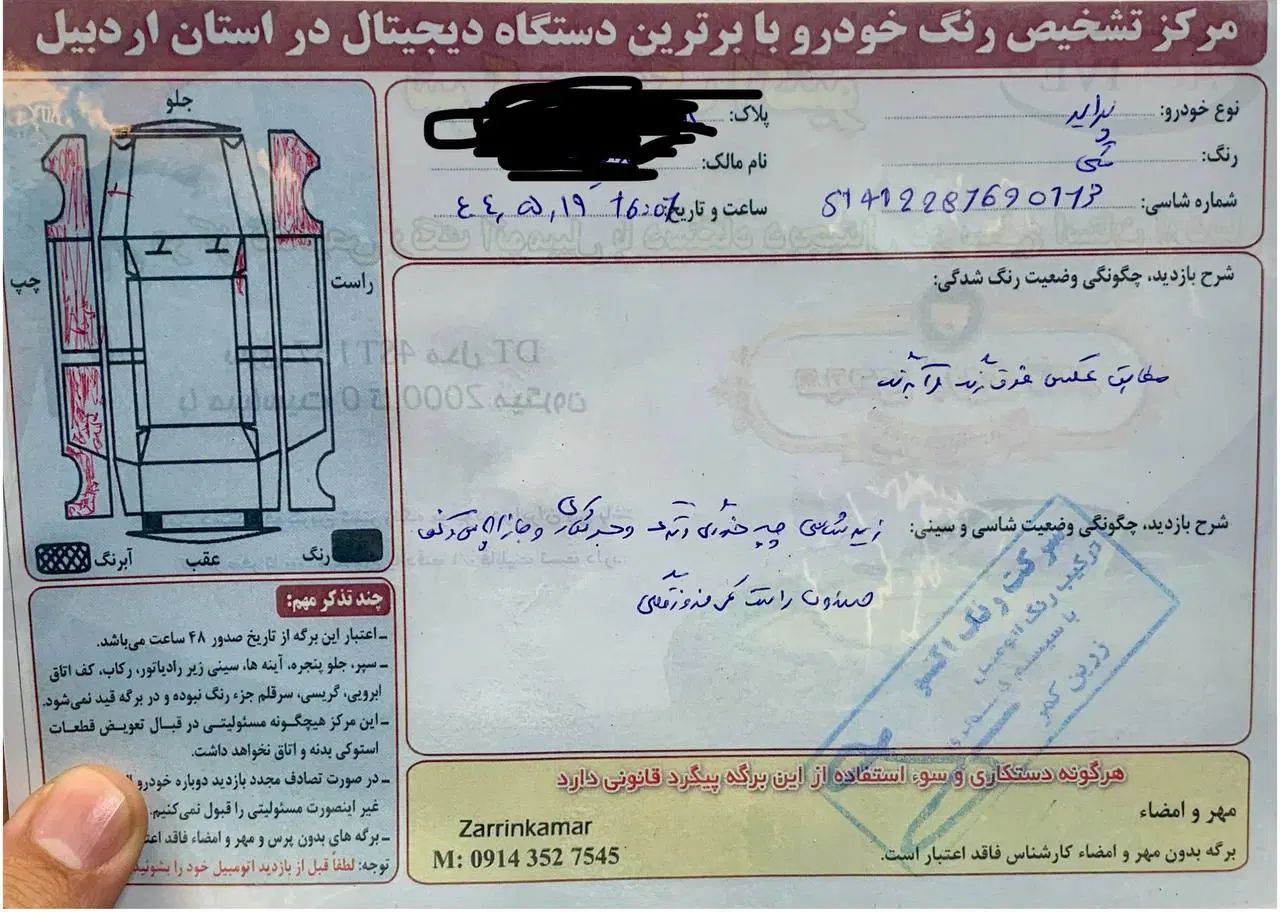 مرکز تشخیص رنگ خودرو با برترین دستگاه دیجیتال در استان اردبیل
نوع خودرو: پراید
پلاک:
رنگ: مشکی
نام مالک:
شماره شاسی: S1412287690773
ساعت و تاریخ:
جلو
چپ
راست
عقب
رنگ
آبرنگ
شرح بازدید، چگونگی وضعیت رنگ شدگی:
مطابق عکس فوق
شرح بازدید، چگونگی وضعیت شاسی و سینی:
چند تذکر مهم:
ـ اعتبار این برگه از تاریخ صدور ۴۸ ساعت می‌باشد.
ـ سپر، جلو پنجره، آینه ها، سینی زیر رادیاتور، رکاب، کف اتاق
ابرویی، گریسی، سرقلم جزء رنگ نبوده و در برگه قید نمی‌شود.
ـ این مرکز هیچگونه مسئولیتی در قبال تعویض قطعات
استوکی بدنه و اتاق نخواهد داشت.
ـ در صورت تصادف مجدد بازدید دوباره خودرو
غیر اینصورت مسئولیتی را قبول نمی‌کنیم.
ـ برگه های بدون پرس و مهر و امضاء فاقد
توجه: لطفاً قبل از بازدید اتومبیل خود را بشوئید
هرگونه دستکاری و سوء استفاده از این برگه پیگرد قانونی دارد
مهر و امضاء
Zarrinkamar
M: 0914 352 7545
برگه بدون مهر و امضاء کارشناس فاقد اعتبار است.
ترکیب رنگ اتومبیل
زرین کمر